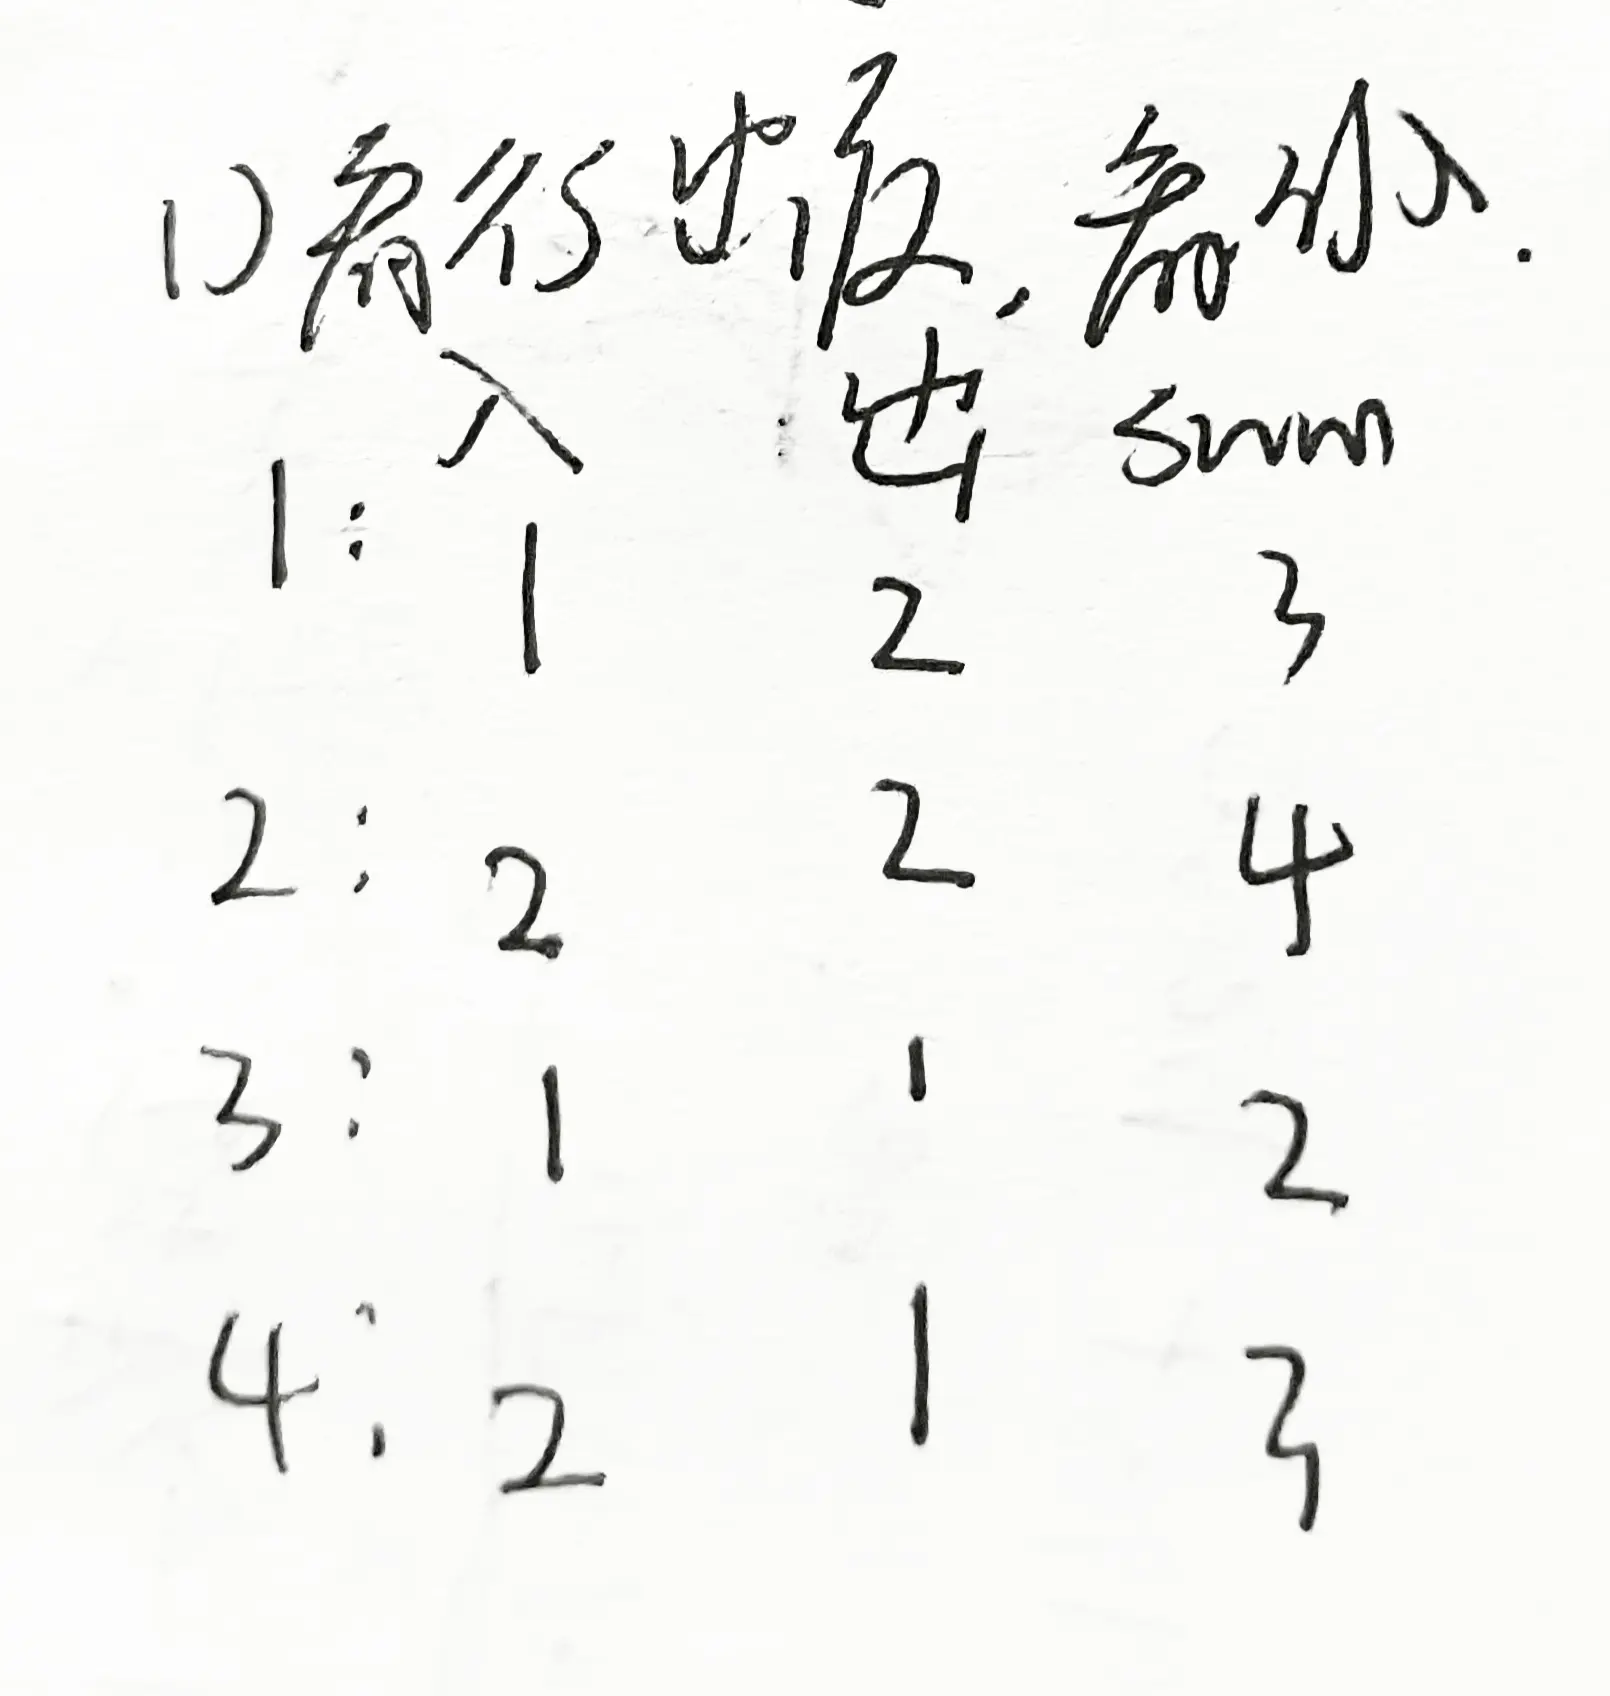 1) 看行出度,看列入.
入 出 sum
1: 1 2 3
2: 2 2 4
3: 1 1 2
4: 2 1 3